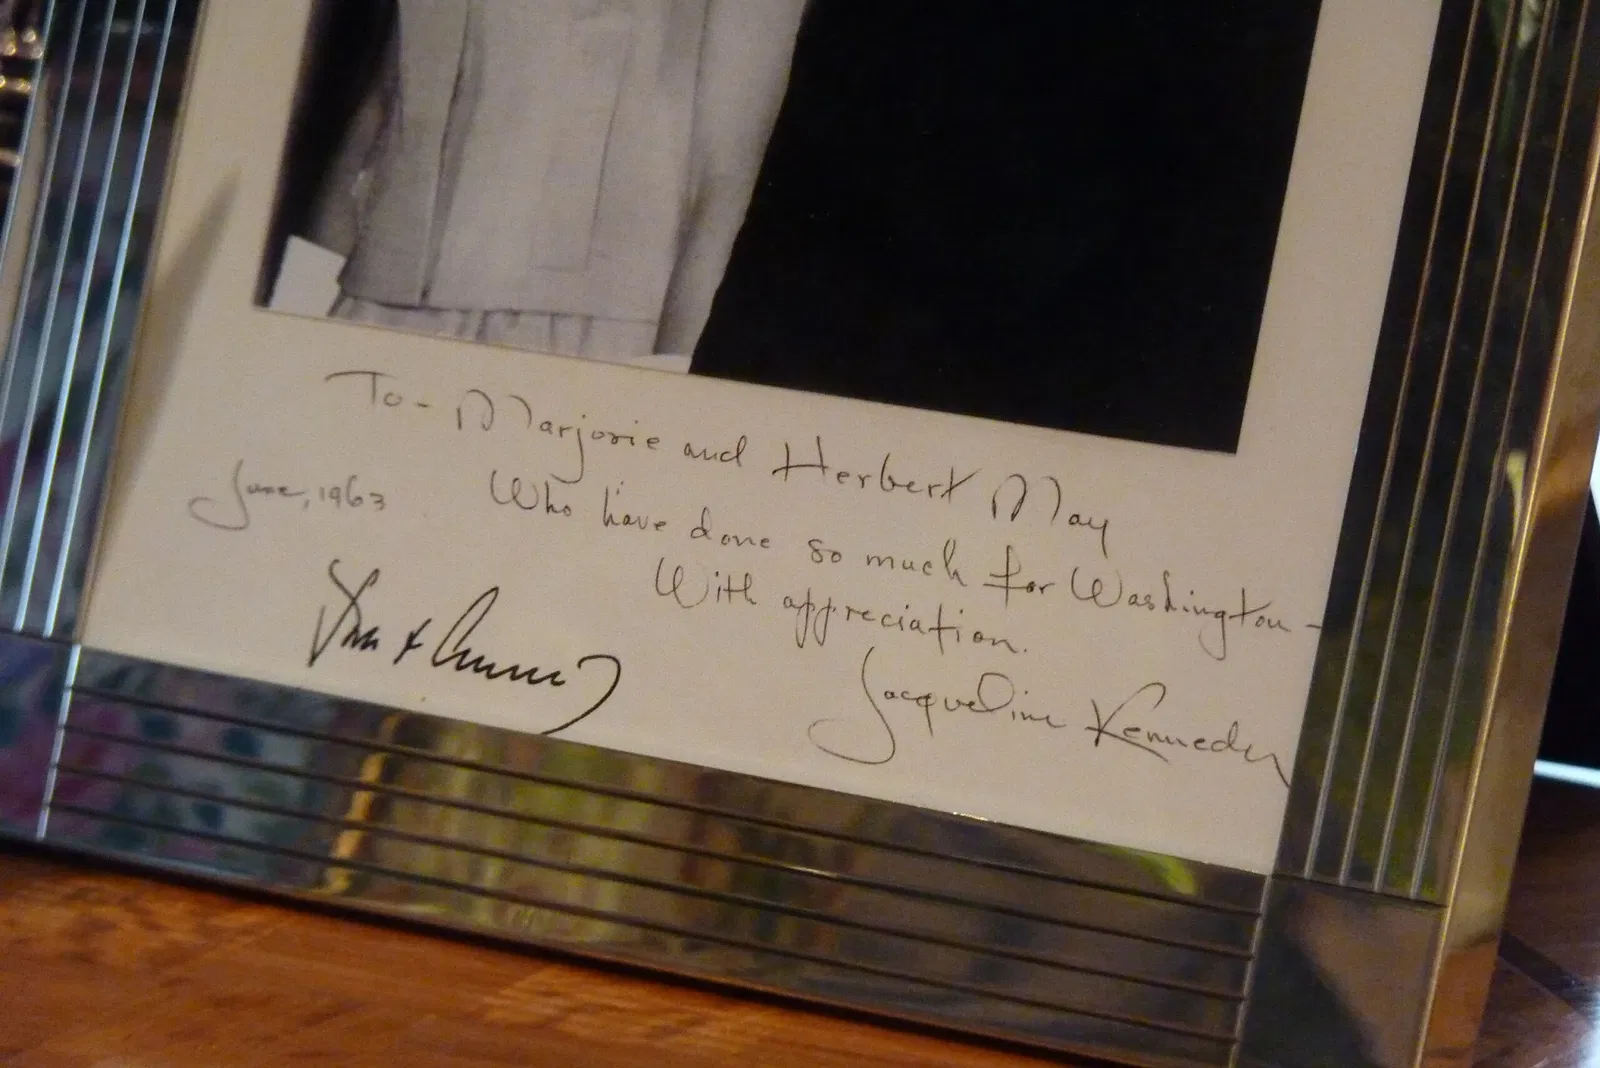 To - Marjorie and Herbert May
Who have done so much for Washington -
With appreciation.
June, 1963
Jacqueline Kennedy